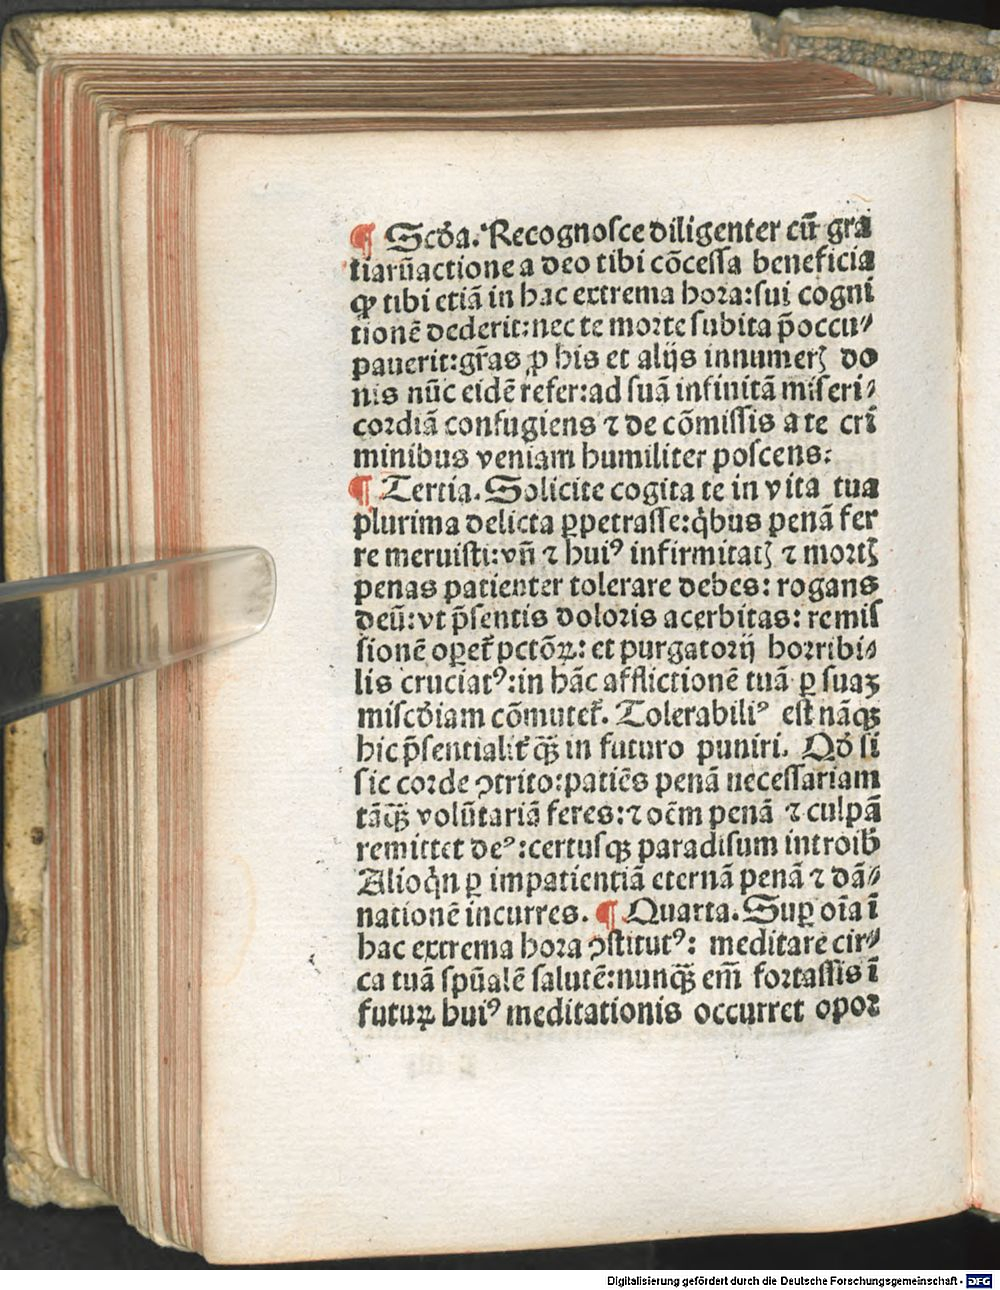 ¶ Scďa. Recognosce diligenter cū gra
tiarūactione a deo tibi cōcessa beneficia
ꝙ tibi etiā in hac extrema hora: sui cogni
tionē dederit: nec te morte subita p̄occu⸗
pauerit: gr̄as ꝓ his et alijs innumerꝭ do
nis nūc eidē refer: ad suā infinitā miseri⸗
cordiā confugiens ⁊ de cōmissis a te cri
minibus veniam humiliter poscens:
¶ Tertia. Solicite cogita te in vita tua
plurima delicta ꝑpetrasse: q̇bus penā fer
re meruisti: vn̄ ⁊ huiꝰ infirmitatꝭ ⁊ mortꝭ
penas patienter tolerare debes: rogans
deū: vt p̄sentis doloris acerbitas: remis
sionē oꝑet̄ pctōꝝ: et purgatorij horribi⸗
lis cruciatꝰ: in hāc afflictionē tuā ꝑ suaꝫ
miscďiam cōmutet̄. Tolerabiliꝰ est nāqꝫ
hic p̄sentialit̄ qꝫ̄ in futuro puniri. Qď si
sic corde ꝯtrito: patiēs penā necessariam
tāqꝫ̄ volūtariā feres: ⁊ oēm penā ⁊ culpā
remittet deꝰ: certusqꝫ paradisum introib̄
Alioq̇n ꝑ impatientiā eternā penā ⁊ dā⸗
nationē incurres. ¶ Quarta. Suꝑ oīa ī
hac extrema hora ꝯstitutꝰ: meditare cir⸗
ca tuā spūalē salutē: nunqꝫ̄ em̄ fortassis ī
futuꝝ huiꝰ meditationis occurret opor
Digitalisierung gefördert durch die Deutsche Forschungsgemeinschaft - DFG